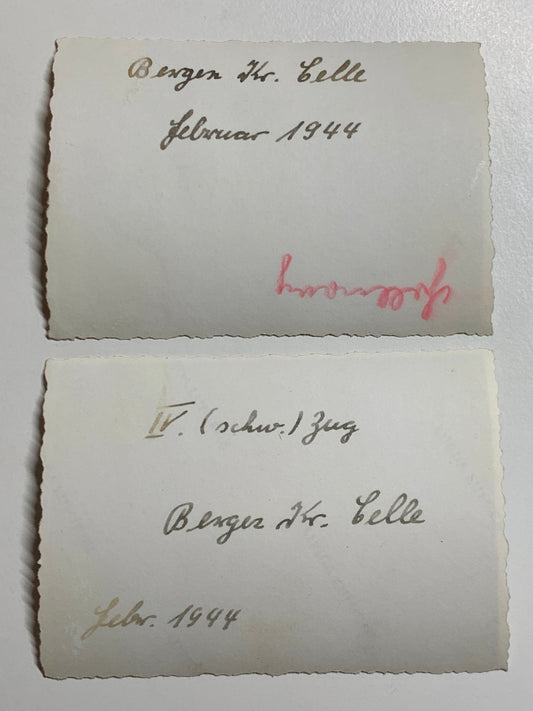 Bergen Kr. Celle
Februar 1944
IV. (schw.) Zug
Bergen Kr. Celle
Febr. 1944